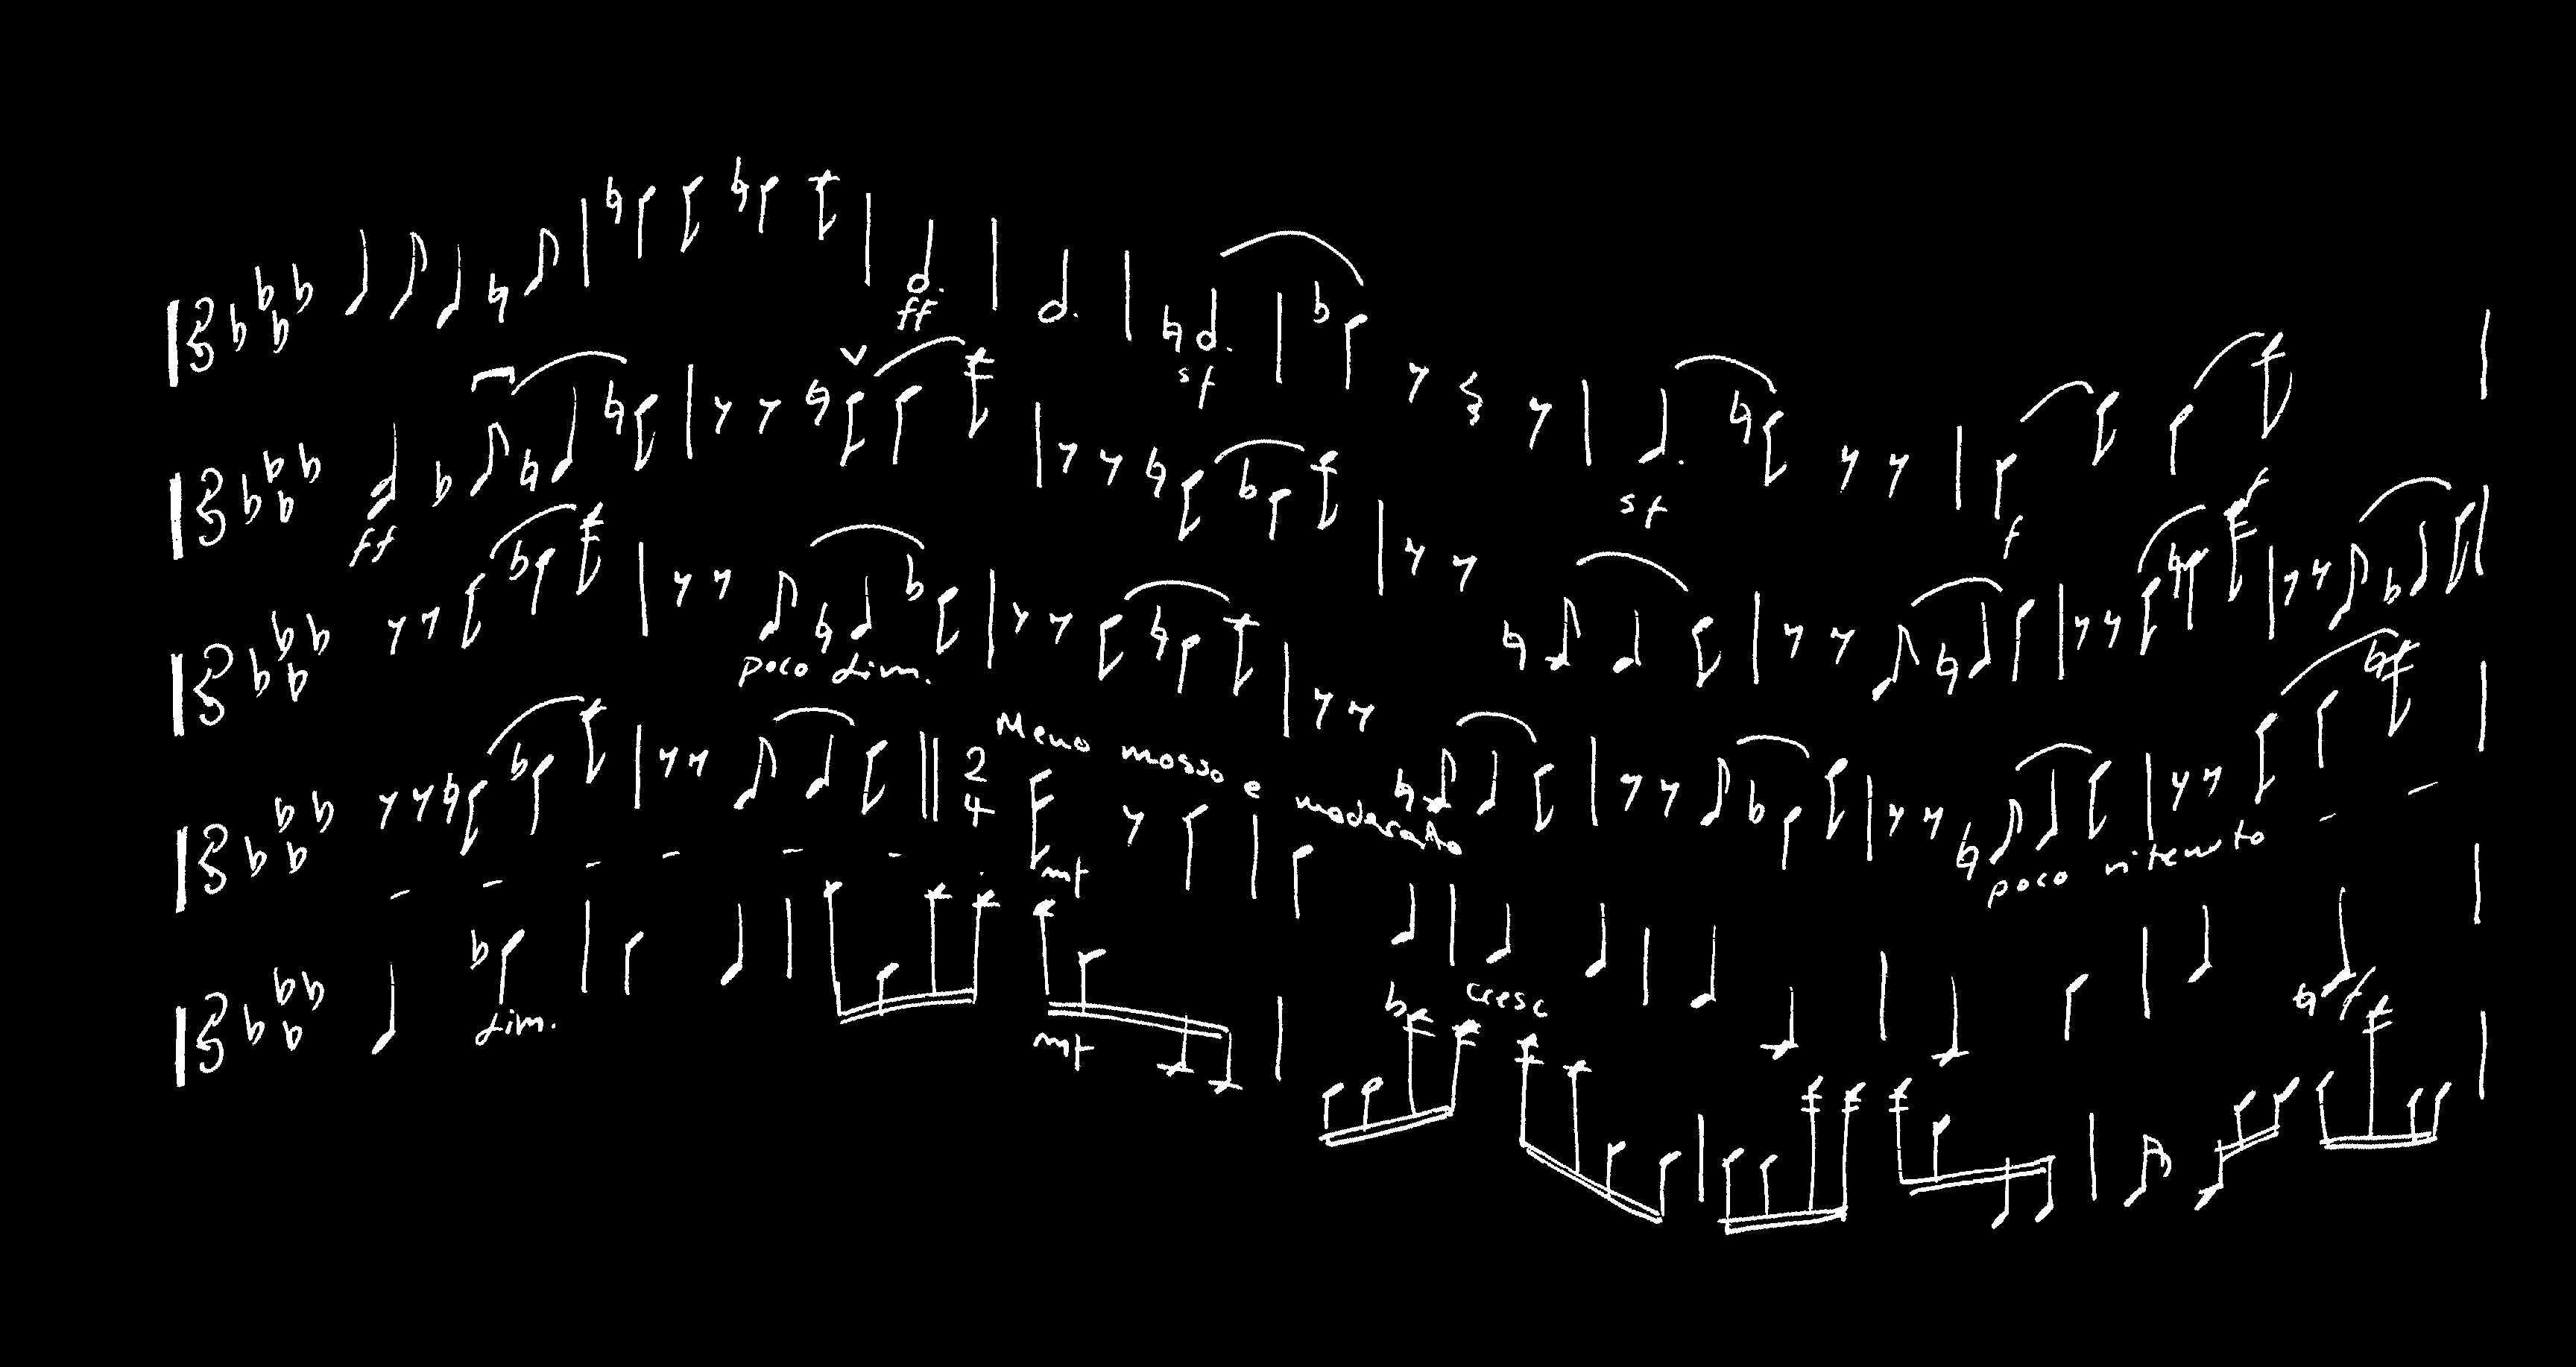 ff
sf
sf
f
ff
poco dim.
Meno mosso e moderato
2
4
mf
poco ritenuto
dim.
mf
cresc